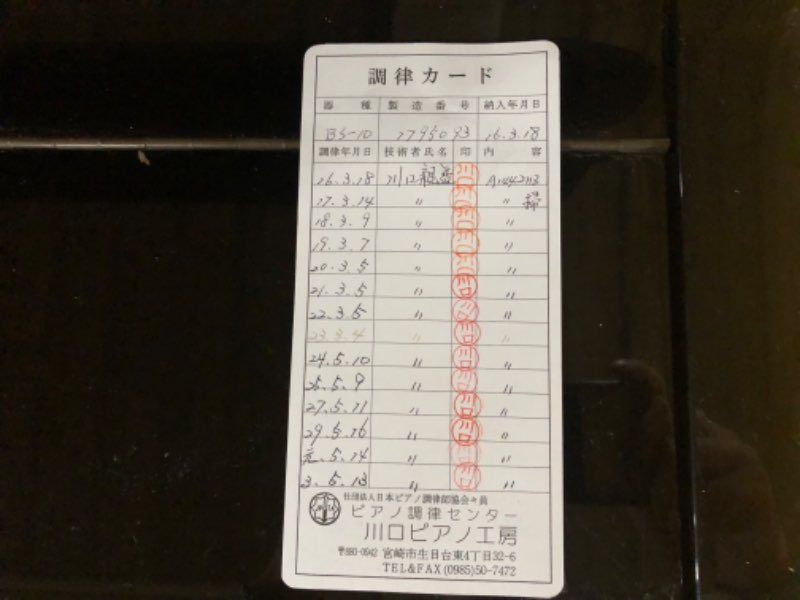 調律カード
器種 製造番号 納入年月日
BS-10 2795093 16.3.18
調律年月日 技術者氏名 印 内容
16.3.18 川口 川口 A442
17.3.14 〃 川口 〃 掃
18.3.9 〃 川口 〃
19.3.7 〃 川口 〃
20.3.5 〃 川口 〃
21.3.5 〃 川口 〃
22.3.5 〃 川口 〃
23.3.4 〃 川口 〃
24.5.10 〃 川口 〃
25.5.9 〃 川口 〃
27.5.11 〃 川口 〃
29.5.16 〃 川口 〃
元.5.14 〃 川口 〃
3.5.13 〃 川口 〃
社団法人日本ピアノ調律師協会々員
ピアノ調律センター
川口ピアノ工房
〒880-0942 宮崎市生目台東4丁目32-6
TEL&FAX (0985)50-7472